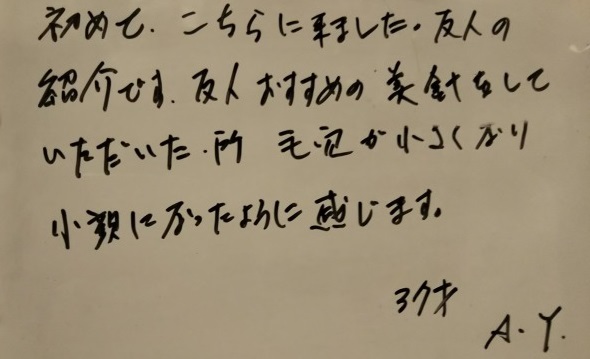 初めて、こちらに来ました。友人の
紹介です。友人おすすめの美針をして
いただいた所 毛穴が小さくなり
小顔になったように感じます。
37才
A.Y.